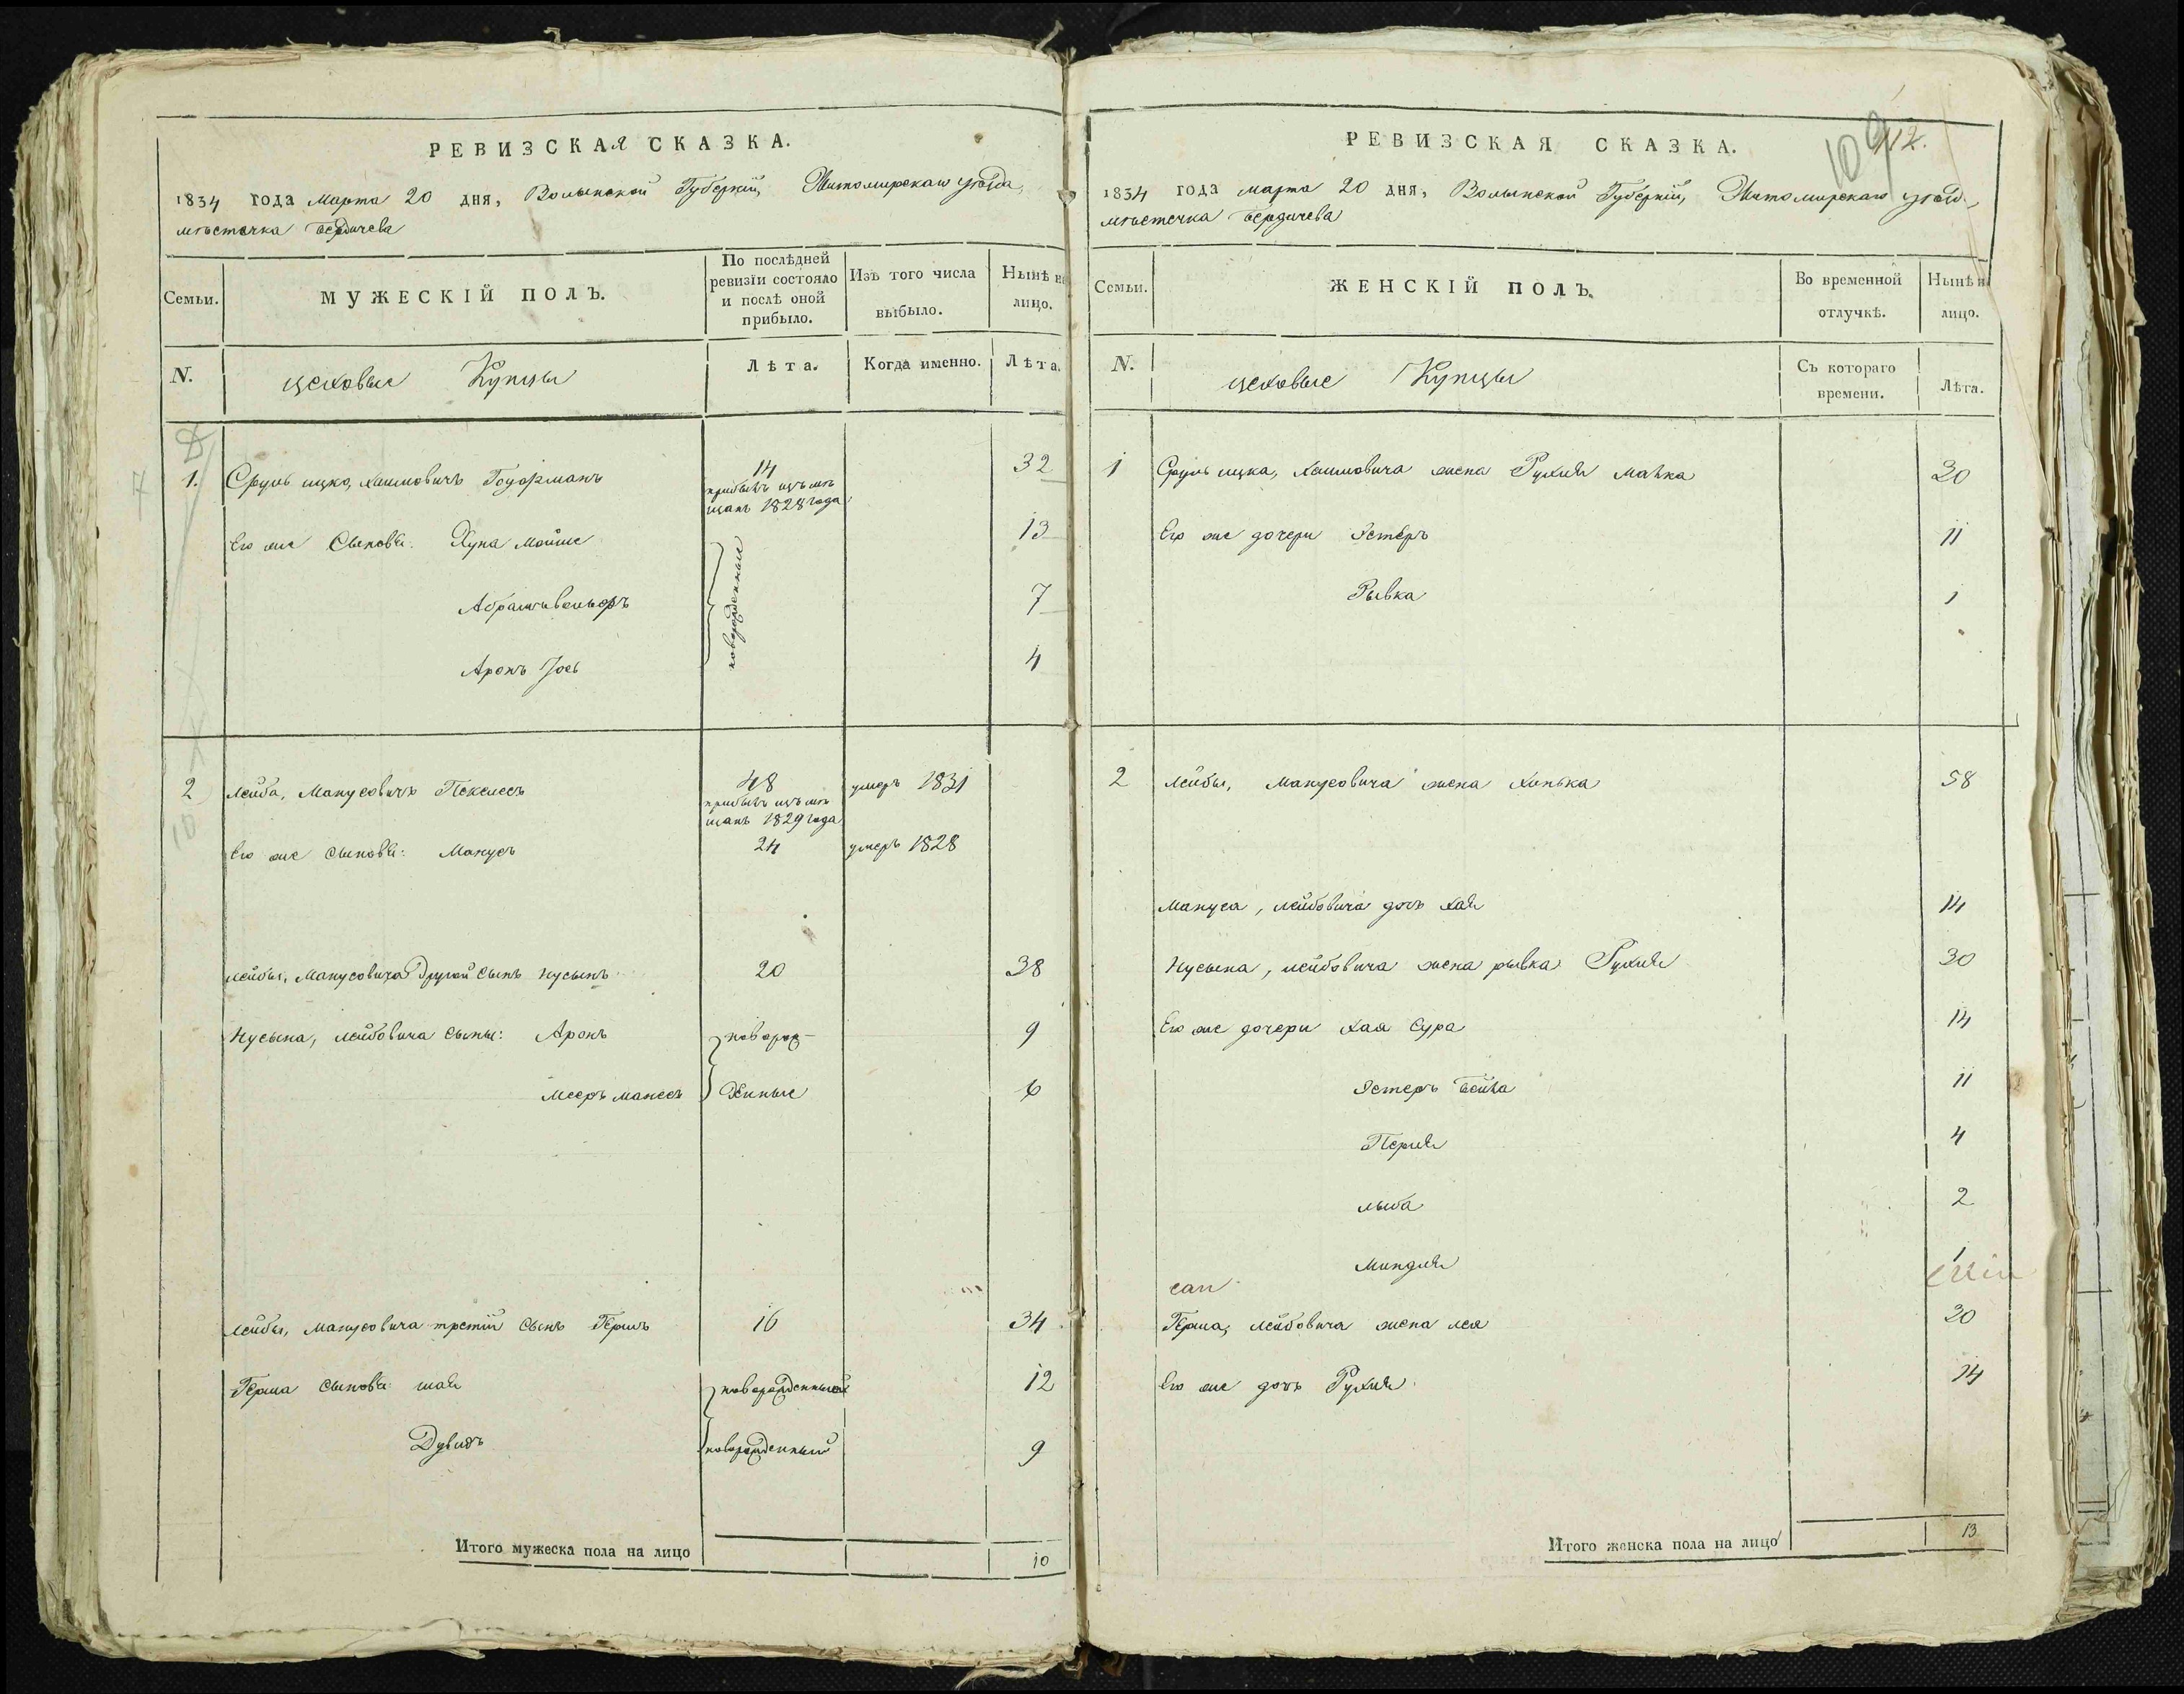 РЕВИЗСКАЯ СКАЗКА.
1834 года марта 20 дня, Волынской Губерніи, Житомирскаго уѣзда,
мѣстечка Бердичева
Семьи.
МУЖЕСКІЙ ПОЛЪ.
По послѣдней ревизіи состояло и послѣ оной прибыло.
Изъ того числа выбыло.
Нынѣ на лицо.
N.
цеховые Купцы
Лѣта.
Когда именно.
Лѣта.
7
1. Сруль ицко, хаимовичъ 14 32
прибылъ изъ мѣ
щанъ 1828 года
Его же Сыновья: Хуна Мойше 13
новорожденные
7
Аронъ Іось 4
2 Лейба, Манусовичъ Пекелесъ 48 умеръ 1831
прибылъ изъ мѣ
щанъ 1829 года
10
Его же сыновья: Манусъ 24 умеръ 1828
Лейбы, Манусовича другой сынъ Нусынъ 20 38
Нусына, лейбовича сыны: Аронъ новорож- 9
Мееръ манесъ денные 6
Лейбы, Манусовича третій Сынъ Гершъ 16 34
Герша сыновья шая новорожденный 12
Дувидъ новорожденный 9
Итого мужеска пола на лицо 10
109
112.
РЕВИЗСКАЯ СКАЗКА.
1834 года марта 20 дня, Волынской Губерніи, Житомирскаго уѣзд.
мѣстечка Бердичева
Семьи.
ЖЕНСКІЙ ПОЛЪ.
Во временной отлучкѣ.
Нынѣ на лицо.
N.
цеховые Купцы
Съ котораго времени.
Лѣта.
1 Сруль ицка, хаимовича жена Рухля малка 30
Его же дочери Эстеръ 11
Рывка 1
2 Лейбы, Манусовича жена Хинька 58
Мануса, лейбовича дочь хая 14
Нусына, лейбовича жена рывка Рухля 30
Его же дочери хая Сура 14
Эстеръ бейла 11
Перля 4
лыба 2
Миндля 1
Герша, лейбовича жена лея 30
Его же дочь Рухля 14
Итого женска пола на лицо 13